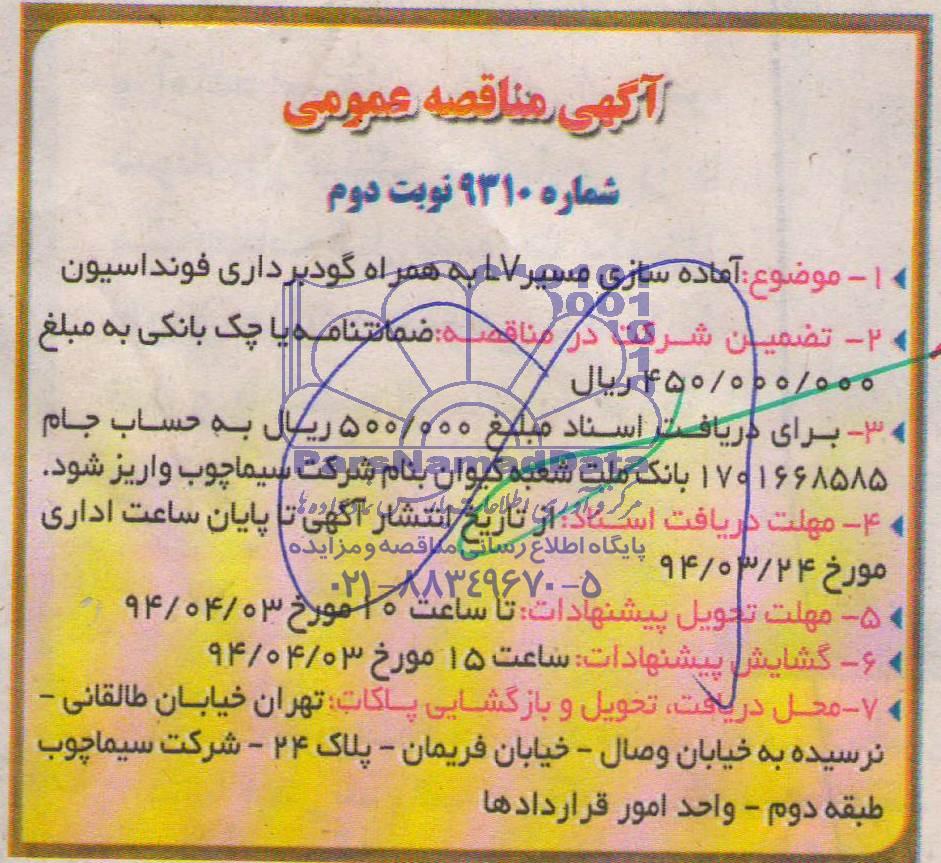 آگهی مناقصه عمومی
شماره ۹۳۱۰ نوبت دوم
۱- موضوع: آماده سازی مسیر LV به همراه گودبرداری فونداسیون
۲- تضمین شرکت در مناقصه: ضمانتنامه یا چک بانکی به مبلغ
۴۵۰/۰۰۰/۰۰۰ ریال
۳- برای دریافت اسناد مبلغ ۵۰۰/۰۰۰ ریال به حساب جام
۱۷۰۱۶۶۸۵۸۵ بانک ملت شعبه کیوان بنام شرکت سیماچوب واریز شود.
ParsNamadData
۴- مهلت دریافت اسناد: از تاریخ انتشار آگهی تا پایان ساعت اداری
پایگاه اطلاع رسانی مناقصه و مزایده
مورخ ۹۴/۰۳/۲۴
۰۲۱-۸۸۳۴۹۶۷۰-۵
۵- مهلت تحویل پیشنهادات: تا ساعت ۱۰ مورخ ۹۴/۰۴/۰۳
۶- گشایش پیشنهادات: ساعت ۱۵ مورخ ۹۴/۰۴/۰۳
۷- محل دریافت، تحویل و بازگشایی پاکات: تهران خیابان طالقانی -
نرسیده به خیابان وصال - خیابان فریمان - پلاک ۲۴ - شرکت سیماچوب
طبقه دوم - واحد امور قراردادها